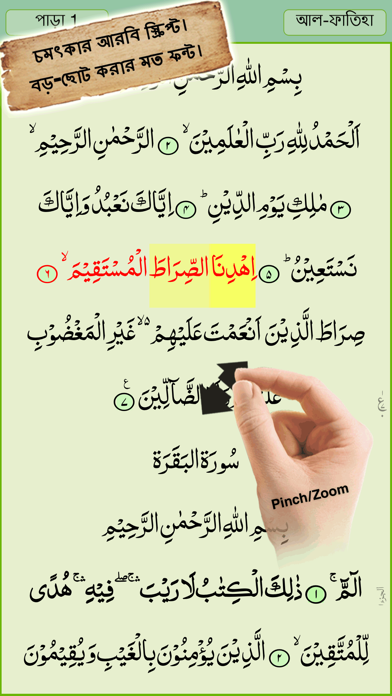 পাড়া 1
আল-ফাতিহা
চমৎকার আরবি স্ক্রিপ্ট।
বড়-ছোট করার মত ফন্ট।
بِسْمِ اللّٰهِ الرَّحْمٰنِ
اَلْحَمْدُ لِلّٰهِ رَبِّ الْعٰلَمِيْنَ ۙ ۝۲ الرَّحْمٰنِ الرَّحِيْمِ ۙ
۝۳ مٰلِكِ يَوْمِ الدِّيْنِ ؕ ۝۴ اِيَّاكَ نَعْبُدُ وَ اِيَّاكَ
نَسْتَعِيْنُ ؕ ۝۵ اِهْدِنَا الصِّرَاطَ الْمُسْتَقِيْمَ ۙ ۝۶
صِرَاطَ الَّذِيْنَ اَنْعَمْتَ عَلَيْهِمْ ۙ۬ۙ غَيْرِ الْمَغْضُوْبِ
الضَّآلِّيْنَ ۝۷
سُوْرَةُ الْبَقَرَةِ
Pinch/Zoom
بِسْمِ اللّٰهِ الرَّحْمٰنِ الرَّحِيْمِ
الٓمّٓ ۚ ۝۱ ذٰلِكَ الْكِتٰبُ لَا رَيْبَ ۛۚ ۖ فِيْهِ ۛۚ هُدًى
لِّلْمُتَّقِيْنَ ۙ ۝۲ الَّذِيْنَ يُؤْمِنُوْنَ بِالْغَيْبِ وَ يُقِيْمُوْنَ